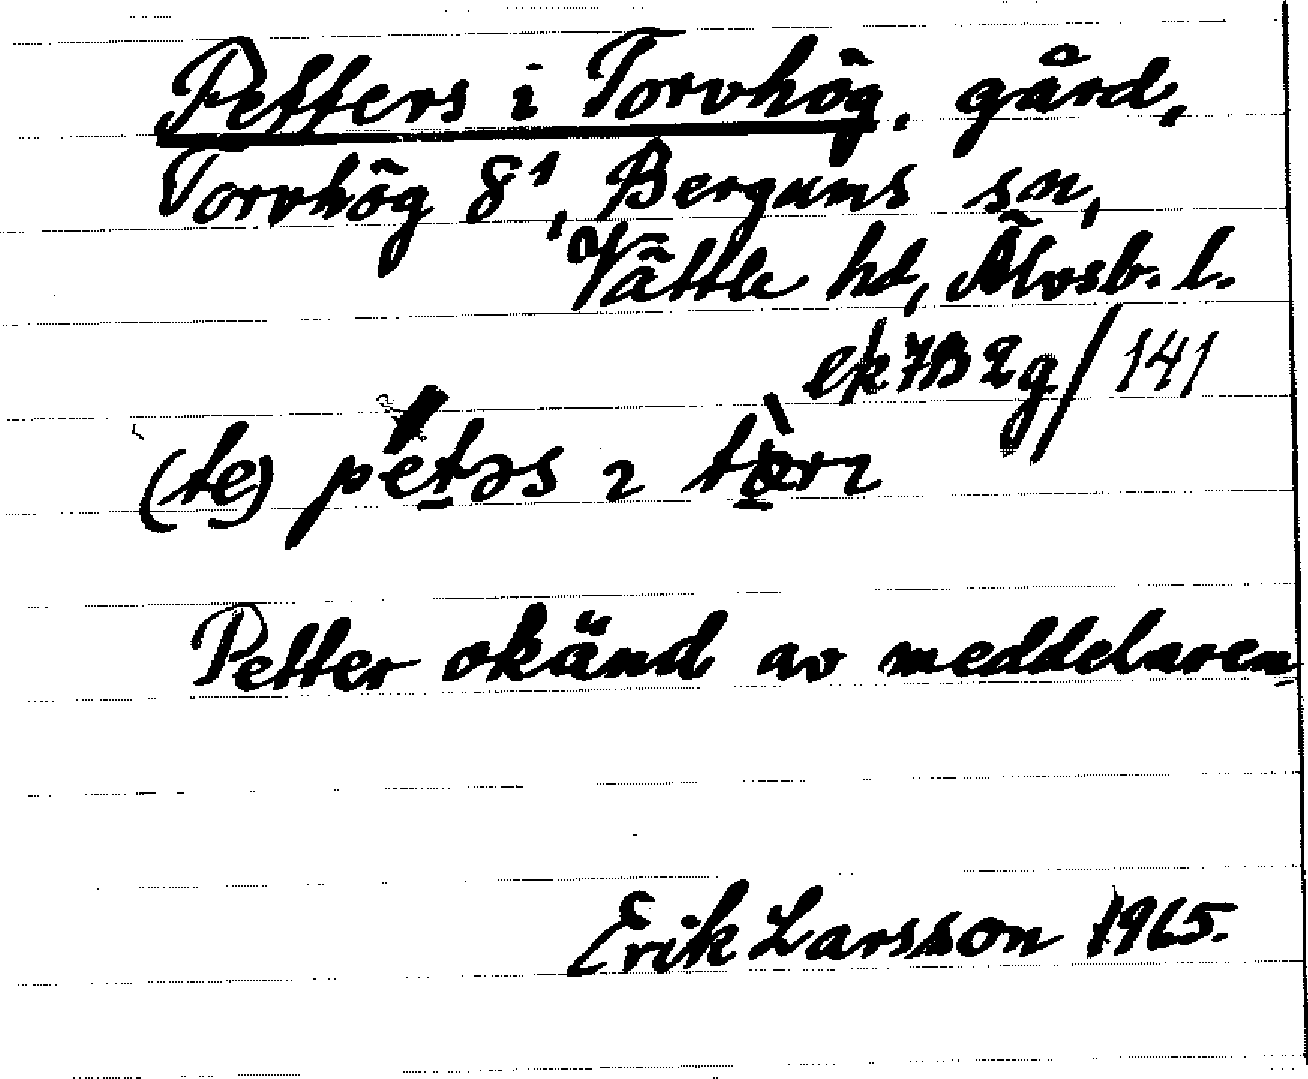 Petters i Torvhög, gård,
Torvhög 8¹, Bergums sn,
Vättle hd, Älvsb. l.
ek 7B2g/141
(te) pétəs ɩ tòrɩ
Petter okänd av meddelaren
Erik Larsson 1965.